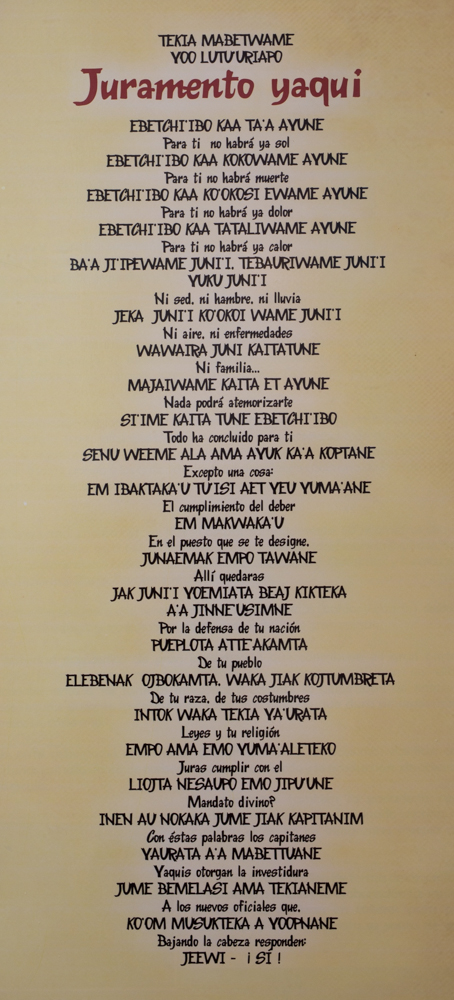 TEKIA MABETWAME
YOO LUTU'URIAPO
Juramento yaqui
EBETCHI'IBO KAA TA'A AYUNE
Para ti no habrá ya sol
EBETCHI'IBO KAA KOKOWAME AYUNE
Para ti no habrá muerte
EBETCHI'IBO KAA KO'OKOSI EWAME AYUNE
Para ti no habrá ya dolor
EBETCHI'IBO KAA TATALIWAME AYUNE
Para ti no habrá ya calor
BA'A JI'IPEWAME JUNI'I, TEBAURIWAME JUNI'I
YUKU JUNI'I
Ni sed, ni hambre, ni lluvia
JEKA JUNI'I KO'OKOI WAME JUNI'I
Ni aire, ni enfermedades
WAWAIRA JUNI KAITATUNE
Ni familia...
MAJAIWAME KAITA ET AYUNE
Nada podrá atemorizarte
SI'IME KAITA TUNE EBETCHI'IBO
Todo ha concluido para ti
SENU WEEME ALA AMA AYUK KA'A KOPTANE
Excepto una cosa:
EM IBAKTAKA'U TU'ISI AET YEU YUMA'ANE
El cumplimiento del deber
EM MAKWAKA'U
En el puesto que se te designe,
JUNAEMAK EMPO TAWANE
Allí quedaras
JAK JUNI'I YOEMIATA BEAJ KIKTEKA
A'A JINNE'USIMNE
Por la defensa de tu nación
PUEPLOTA ATTE'AKAMTA
De tu pueblo
ELEBENAK OJBOKAMTA, WAKA JIAK KOJTUMBRETA
De tu raza, de tus costumbres
INTOK WAKA TEKIA YA'URATA
Leyes y tu religión
EMPO AMA EMO YUMA'ALETEKO
Juras cumplir con el
LIOJTA NESAUPO EMO JIPU'UNE
Mandato divino?
INEN AU NOKAKA JUME JIAK KAPITANIM
Con éstas palabras los capitanes
YAURATA A'A MABETTUANE
Yaquis otorgan la investidura
JUME BEMELASI AMA TEKIANEME
A los nuevos oficiales que,
KO'OM MUSUKTEKA A YOOPNANE
Bajando la cabeza responden:
JEEWI - ¡ SÍ !